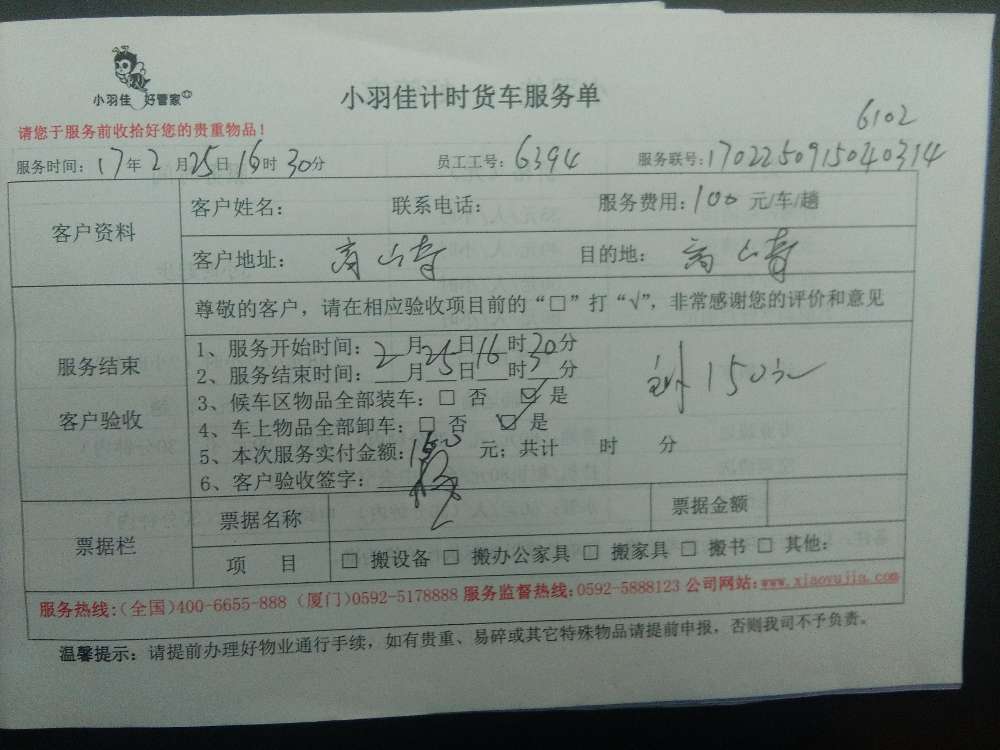 小羽佳 好管家
小羽佳计时货车服务单
6102
请您于服务前收拾好您的贵重物品！
服务时间：17年2月25日16时30分 员工工号：6394 服务联号：1702250915040314
客户资料
客户姓名： 联系电话： 服务费用：100元/车/趟
客户地址： 高山 目的地： 高山
服务结束
客户验收
尊敬的客户，请在相应验收项目前的“□”打“√”，非常感谢您的评价和意见
1、服务开始时间：2月25日16时30分
2、服务结束时间：___月___日___时___分
3、候车区物品全部装车：□ 否 ☑ 是
4、车上物品全部卸车：□ 否 ☑ 是
5、本次服务实付金额：150元；共计 时 分
6、客户验收签字：
150元
票据栏
票据名称 票据金额
项 目 □ 搬设备 □ 搬办公家具 □ 搬家具 □ 搬书 □ 其他：
服务热线：（全国）400-6655-888（厦门）0592-5178888 服务监督热线：0592-5888123 公司网站：www.xiaoyujia.com
温馨提示：请提前办理好物业通行手续，如有贵重、易碎或其它特殊物品请提前申报，否则我司不予负责。